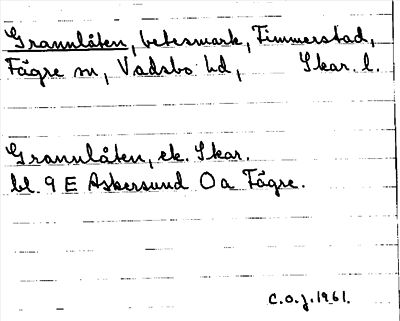 Grannlåten, betesmark, Timmerstad,
Fägre sn, Vadsbo hd, Skar. l.
Grannlåten, ek. Skar.
bl. 9 E Askersund Oa Fägre.
C.O.J. 1961.